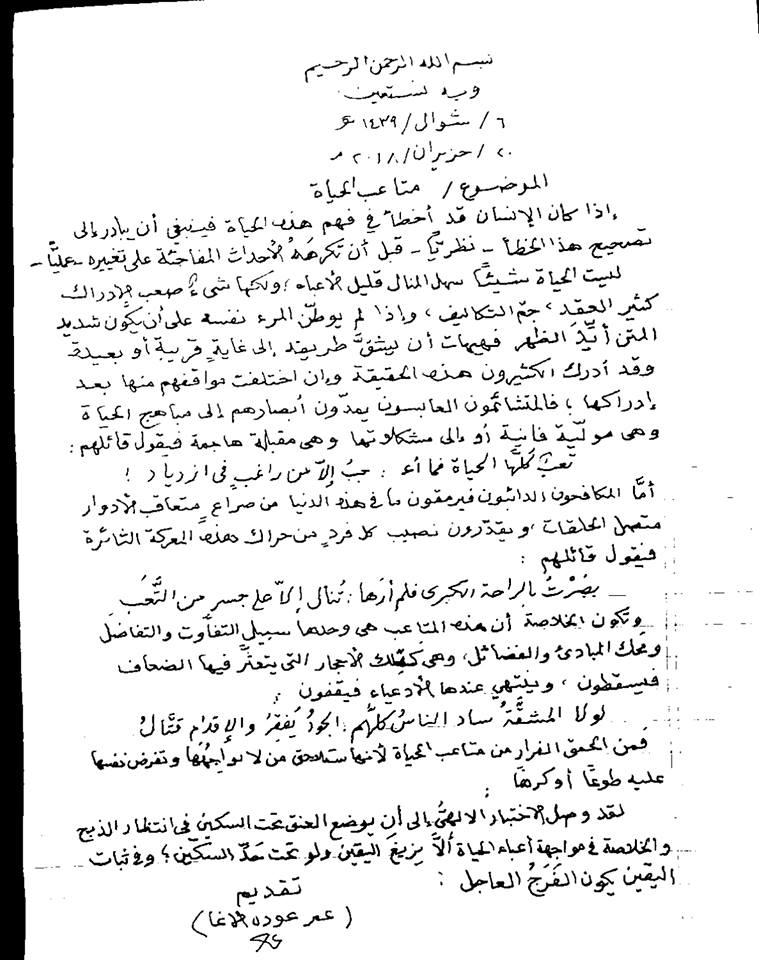 بسم الله الرحمن الرحيم
وبه نستعين
٦ / شوال / ١٤٣٩ هـ
٢٠ / حزيران / ٢٠١٨ م
الموضوع / متاعب الحياة
إذا كان الإنسان قد أخطأ في فهم هذه الحياة فينبغي أن يبادر إلى
تصحيح هذا الخطأ - نظريًّا - قبل أن تكرهَهُ الأحداث المفاجئة على تغييره - عمليًّا -
ليست الحياة شيئًا سهل المنال قليل الأعباء ؛ ولكنها شيءٌ صعب الإدراك
كثير العقد ، جمّ التكاليف ، وإذا لم يوطّن المرء نفسه على أن يكون شديد
المتن أيِّدَ الظهر فهيهات أن يشقَّ طريقه إلى غايةٍ قريبة أو بعيدة
وقد أدرك الكثيرون هذه الحقيقة وإن اختلفت مواقفهم منها بعد
إدراكها ؛ فالمتشائمون العابسون يمدّون أبصارهم إلى مباهج الحياة
وهى مولّية فانية أو إلى مشكلاتها وهى مقبلة هاجمة فيقول قائلهم :
تعبٌ كلّها الحياة فما أعـ : ـجبُ إلاّ من راغبٍ فى ازدياد !
أمَّا المكافحون الدائبون فيرمقون ما فى هذه الدنيا من صراعٍ متعاقب الأدوار
متصل الحلقات ، ويقدّرون نصيب كل فردٍ من حراك هذه المعركة الثائرة
فيقول قائلهم :
بصُرْتُ بالراحة الكبرى فلم أرَها : تُنال إلاّ على جسرٍ من التَّعَب
وتكون الخلاصة أن هذه المتاعب هى وحدها سبيل التفاوت والتفاضل
ومحك المبادئ والفضائل ، وهى كذلك الأحجار التى يتعثّر فيها الضعاف
فيسقطون ، وينتهي عندها الأدعياء فيقفون :
لولا المشقَّةُ ساد الناسُ كلُّهم : الجودُ يُفقِرُ والإقدام قتّالُ
فمن الحمق الفرار من متاعب الحياة لأنها ستلاحق من لا يواجهُها وتفرض نفسها
عليه طوعًا أو كرهًا :
لقد وصل الاختبار الالهىُّ إلى أن يوضع العنق تحت السكين فى انتظار الذبح
والخلاصة فى مواجهة أعباء الحياة ألاَّ يزيغ اليقين ولو تحت حدّ السكّين ؛ وفى ثبات
اليقين يكون الفَرَجُ العاجل :
تقديم
( عمر عوده الأغا )